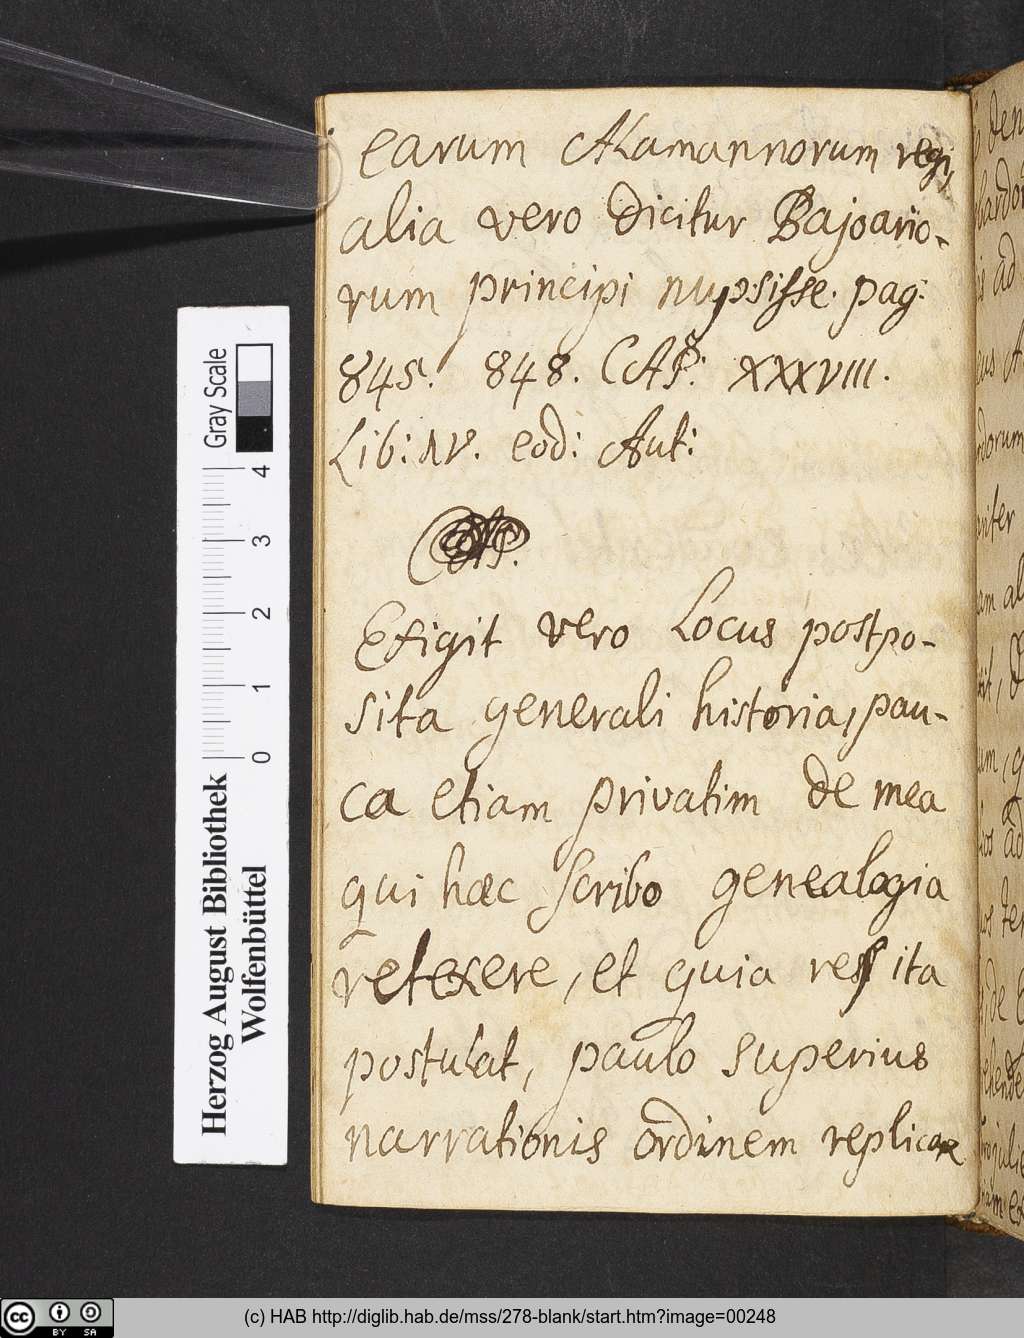 earum Alamannorum regi,
alia vero dicitur Bajoario-
rum principi nupsisse. pag.
845. 848. CAP: XXXVIII.
Lib: IV. eod: Aut:
Exigit vero Locus postpo-
sita generali historia, pau-
ca etiam privatim de mea
qui haec scribo genealogia
retexere, et quia res ita
postulat, paulo superius
narrationis ordinem replicare
Herzog August Bibliothek
Wolfenbüttel
0 1 2 3 4
Gray Scale
(c) HAB http://diglib.hab.de/mss/278-blank/start.htm?image=00248
cc BY SA